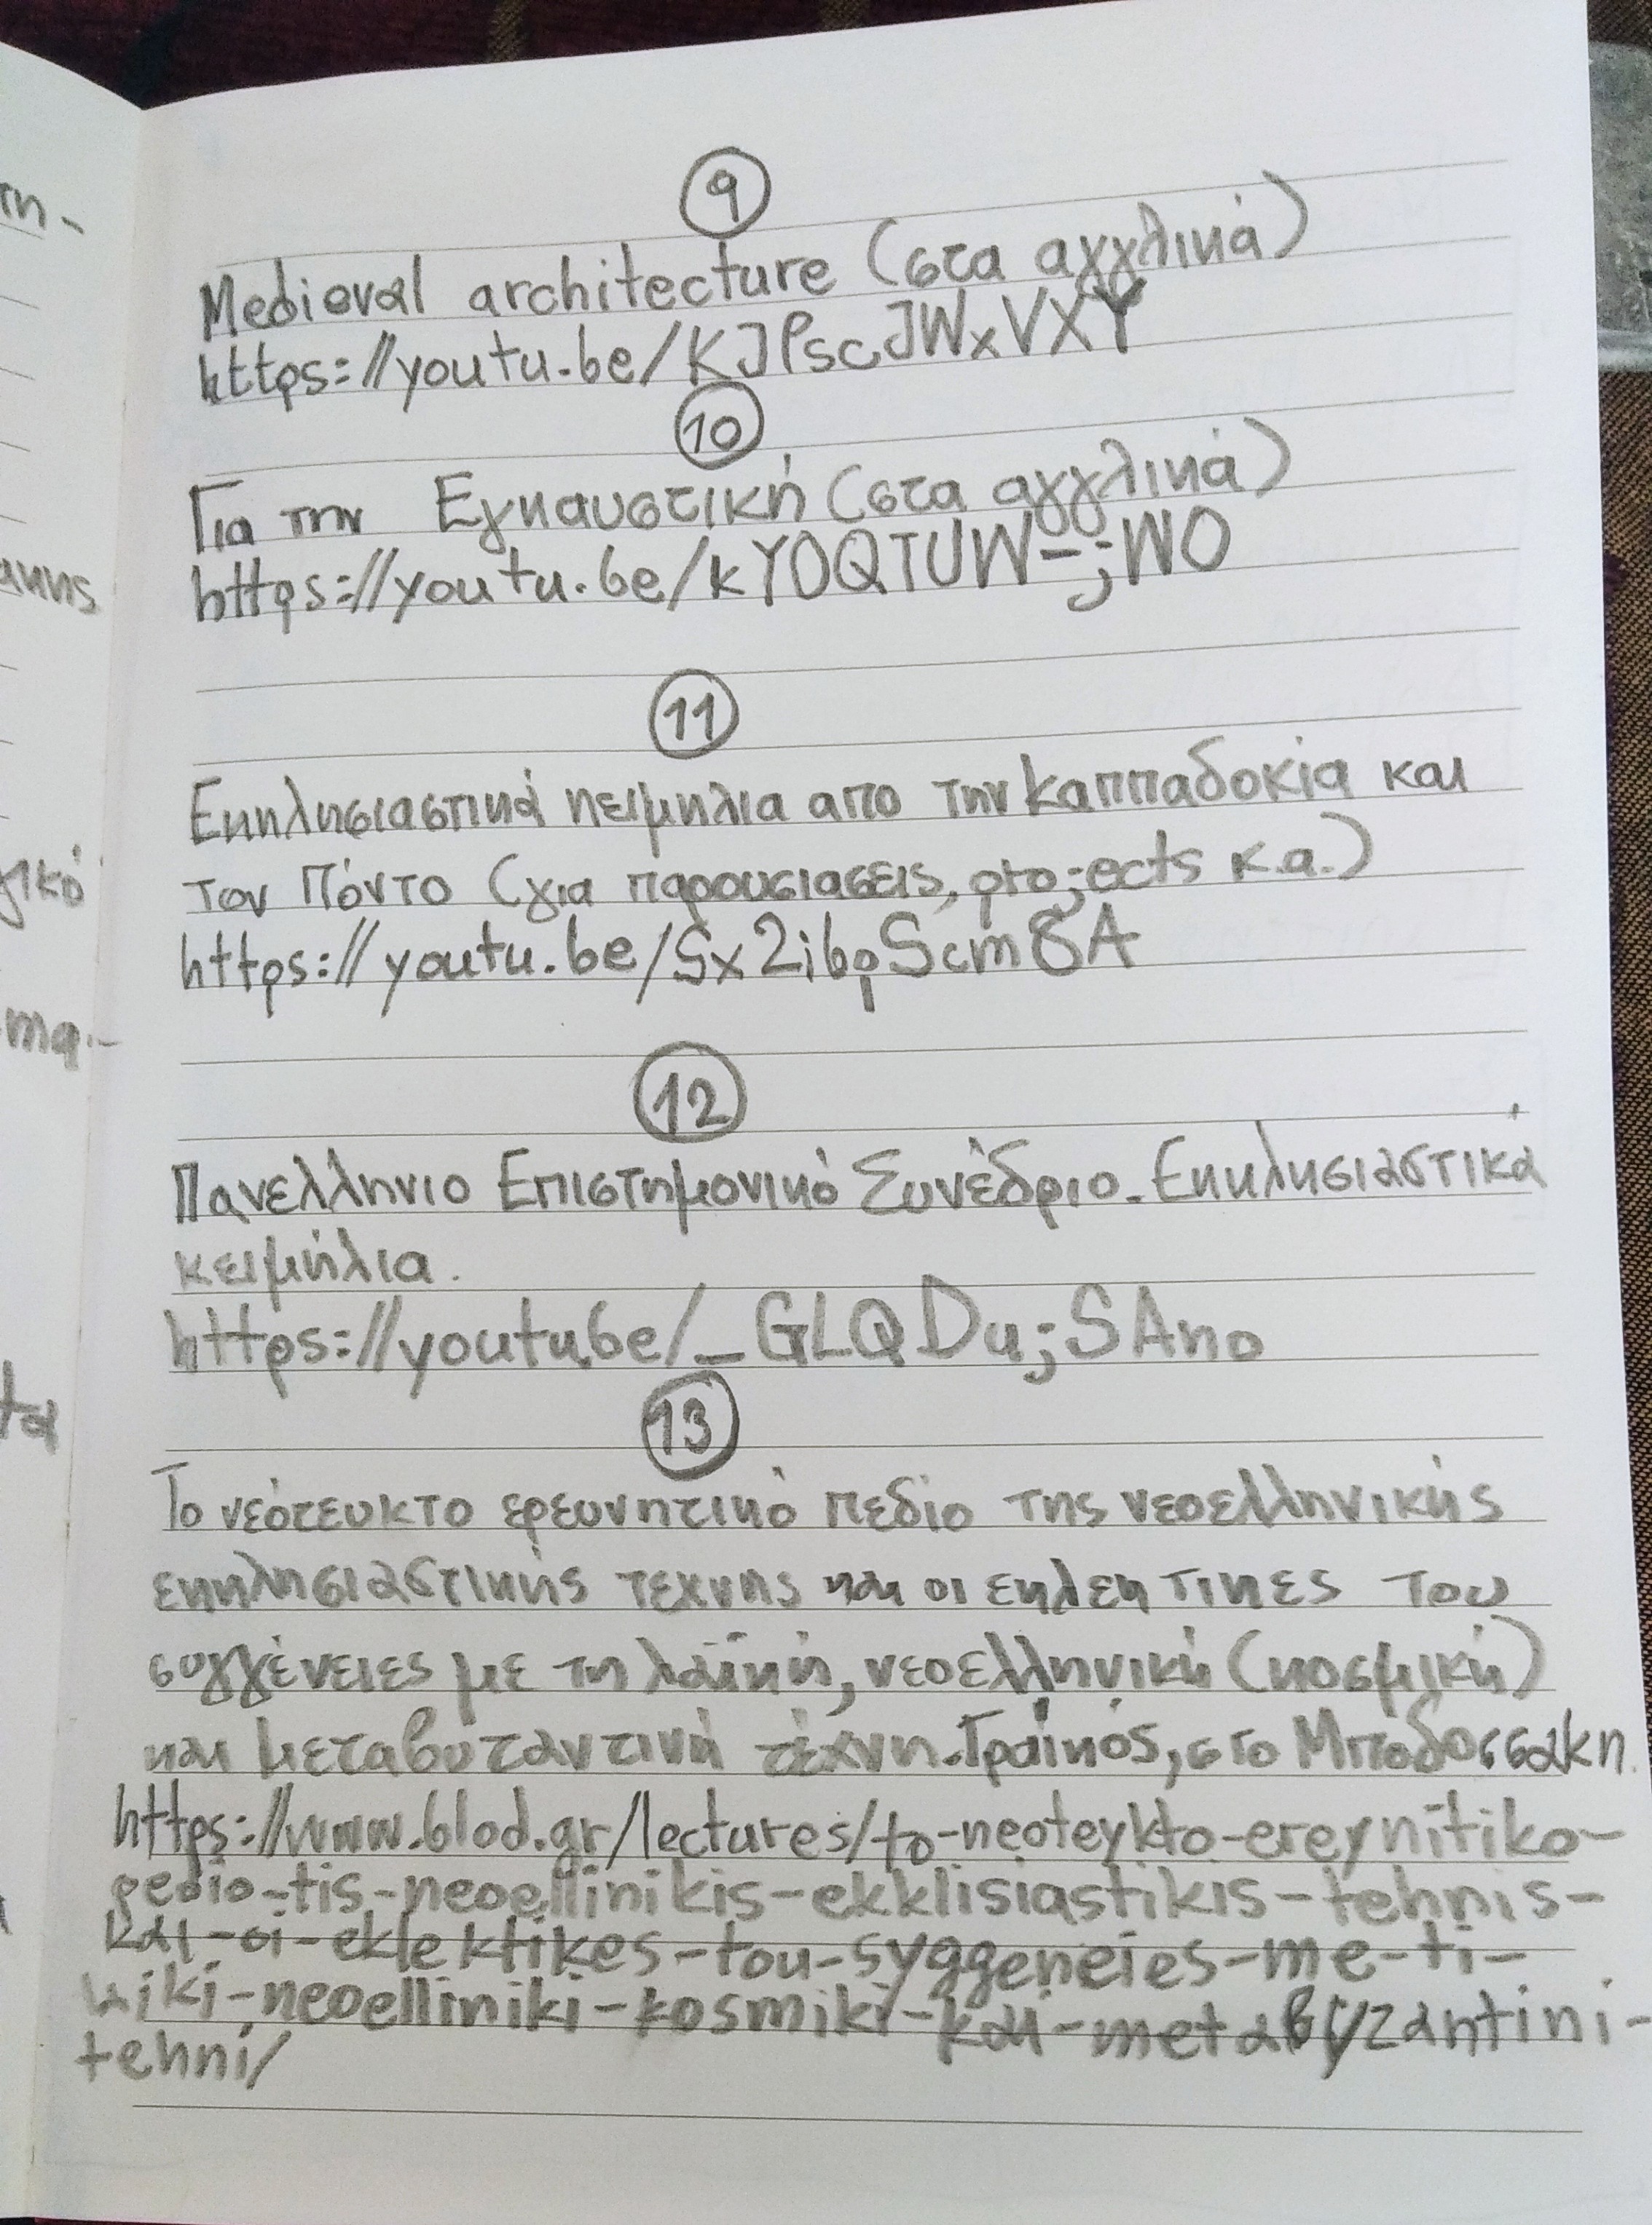 9
Medieval architecture (στα αγγλικά)
https://youtu.be/KJPscJWxVXY
10
Για την Εγκαυστική (στα αγγλικά)
https://youtu.be/kYOQTUW-jWO
11
Εκκλησιαστικά κειμηλια απο την Καππαδοκία και
τον Πόντο (για παρουσιασεις, projects κ.α.)
https://youtu.be/Sx2ibpScm8A
12
Πανελληνιο Επιστημονικό Συνέδριο. Εκκλησιαστικά
κειμήλια.
https://youtu.be/_GLQDujSAno
13
Το νεότευκτο ερευνητικό πεδίο της νεοελληνικής
εκκλησιαστικής τεχνης και οι εκλεκτικες του
συγγένειες με τη λαϊκή, νεοελληνική (κοσμική)
και μεταβυζαντινή τέχνη. Γραίκός, στο Μποδοσσακη.
https://www.blod.gr/lectures/to-neoteykto-ereynitiko-
pedio-tis-neoellinikis-ekklisiastikis-tehnis-
kai-oi-eklektikes-tou-syggeneies-me-ti-
-neoelliniki-kosmiki-kai-metabyzantini-
tehni/
τη-
γικό
τα